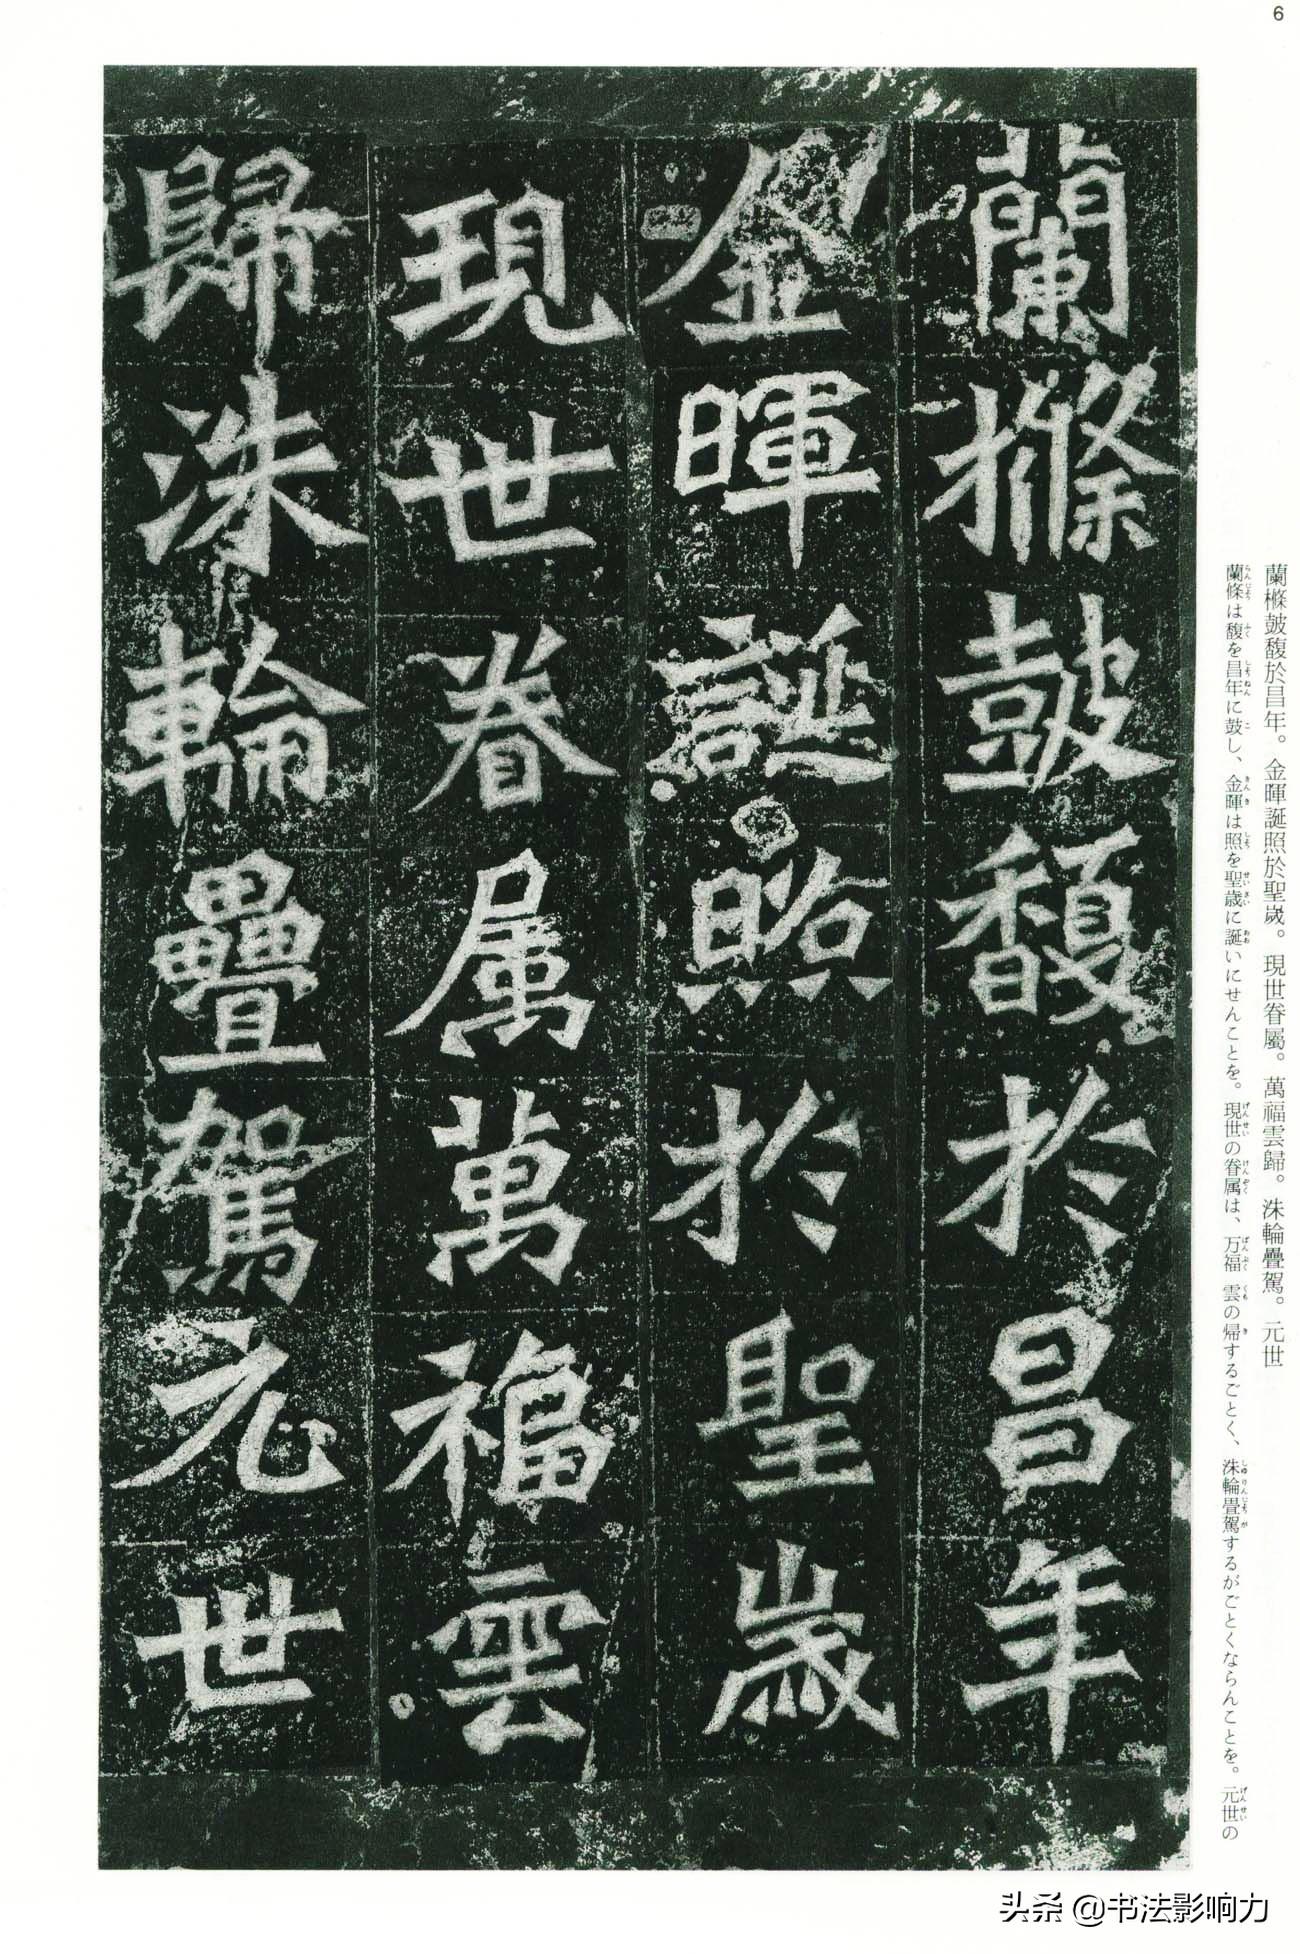 6
蘭橼皷馥於昌年。金暉誕照於聖歲。現世眷屬。萬福雲歸。洙輪疊駕。元世
蘭條は馥を昌年に鼓し、金暉は照を聖歳に誕いにせんことを。現世の眷属は、万福雲の帰するごとく、洙輪畳駕するがごとくならんことを。元世の
蘭㯳皷馥於昌年
金暉誕照於聖歲
現世眷属萬福雲
歸洙輪疊駕元世
头条 @书法影响力